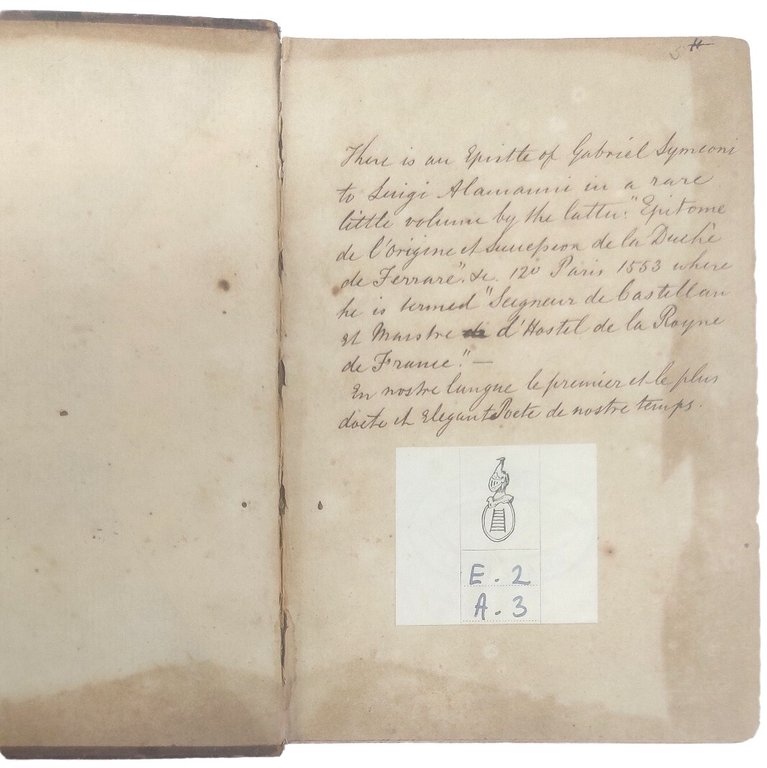 5 #
There is an Epistle of Gabriel Symeoni
to Luigi Alamanni in a rare
little volume by the latter. "Epitome
de l'Origine et Succession de la Duché
de Ferrare". &c. 12º Paris 1553 where
he is termed "Seigneur de Castellan
et Maistre d'Hostel de la Royne
de France". —
En nostre langue le premier et le plus
docte et Elegant Poete de nostre temps.
E. 2
A. 3